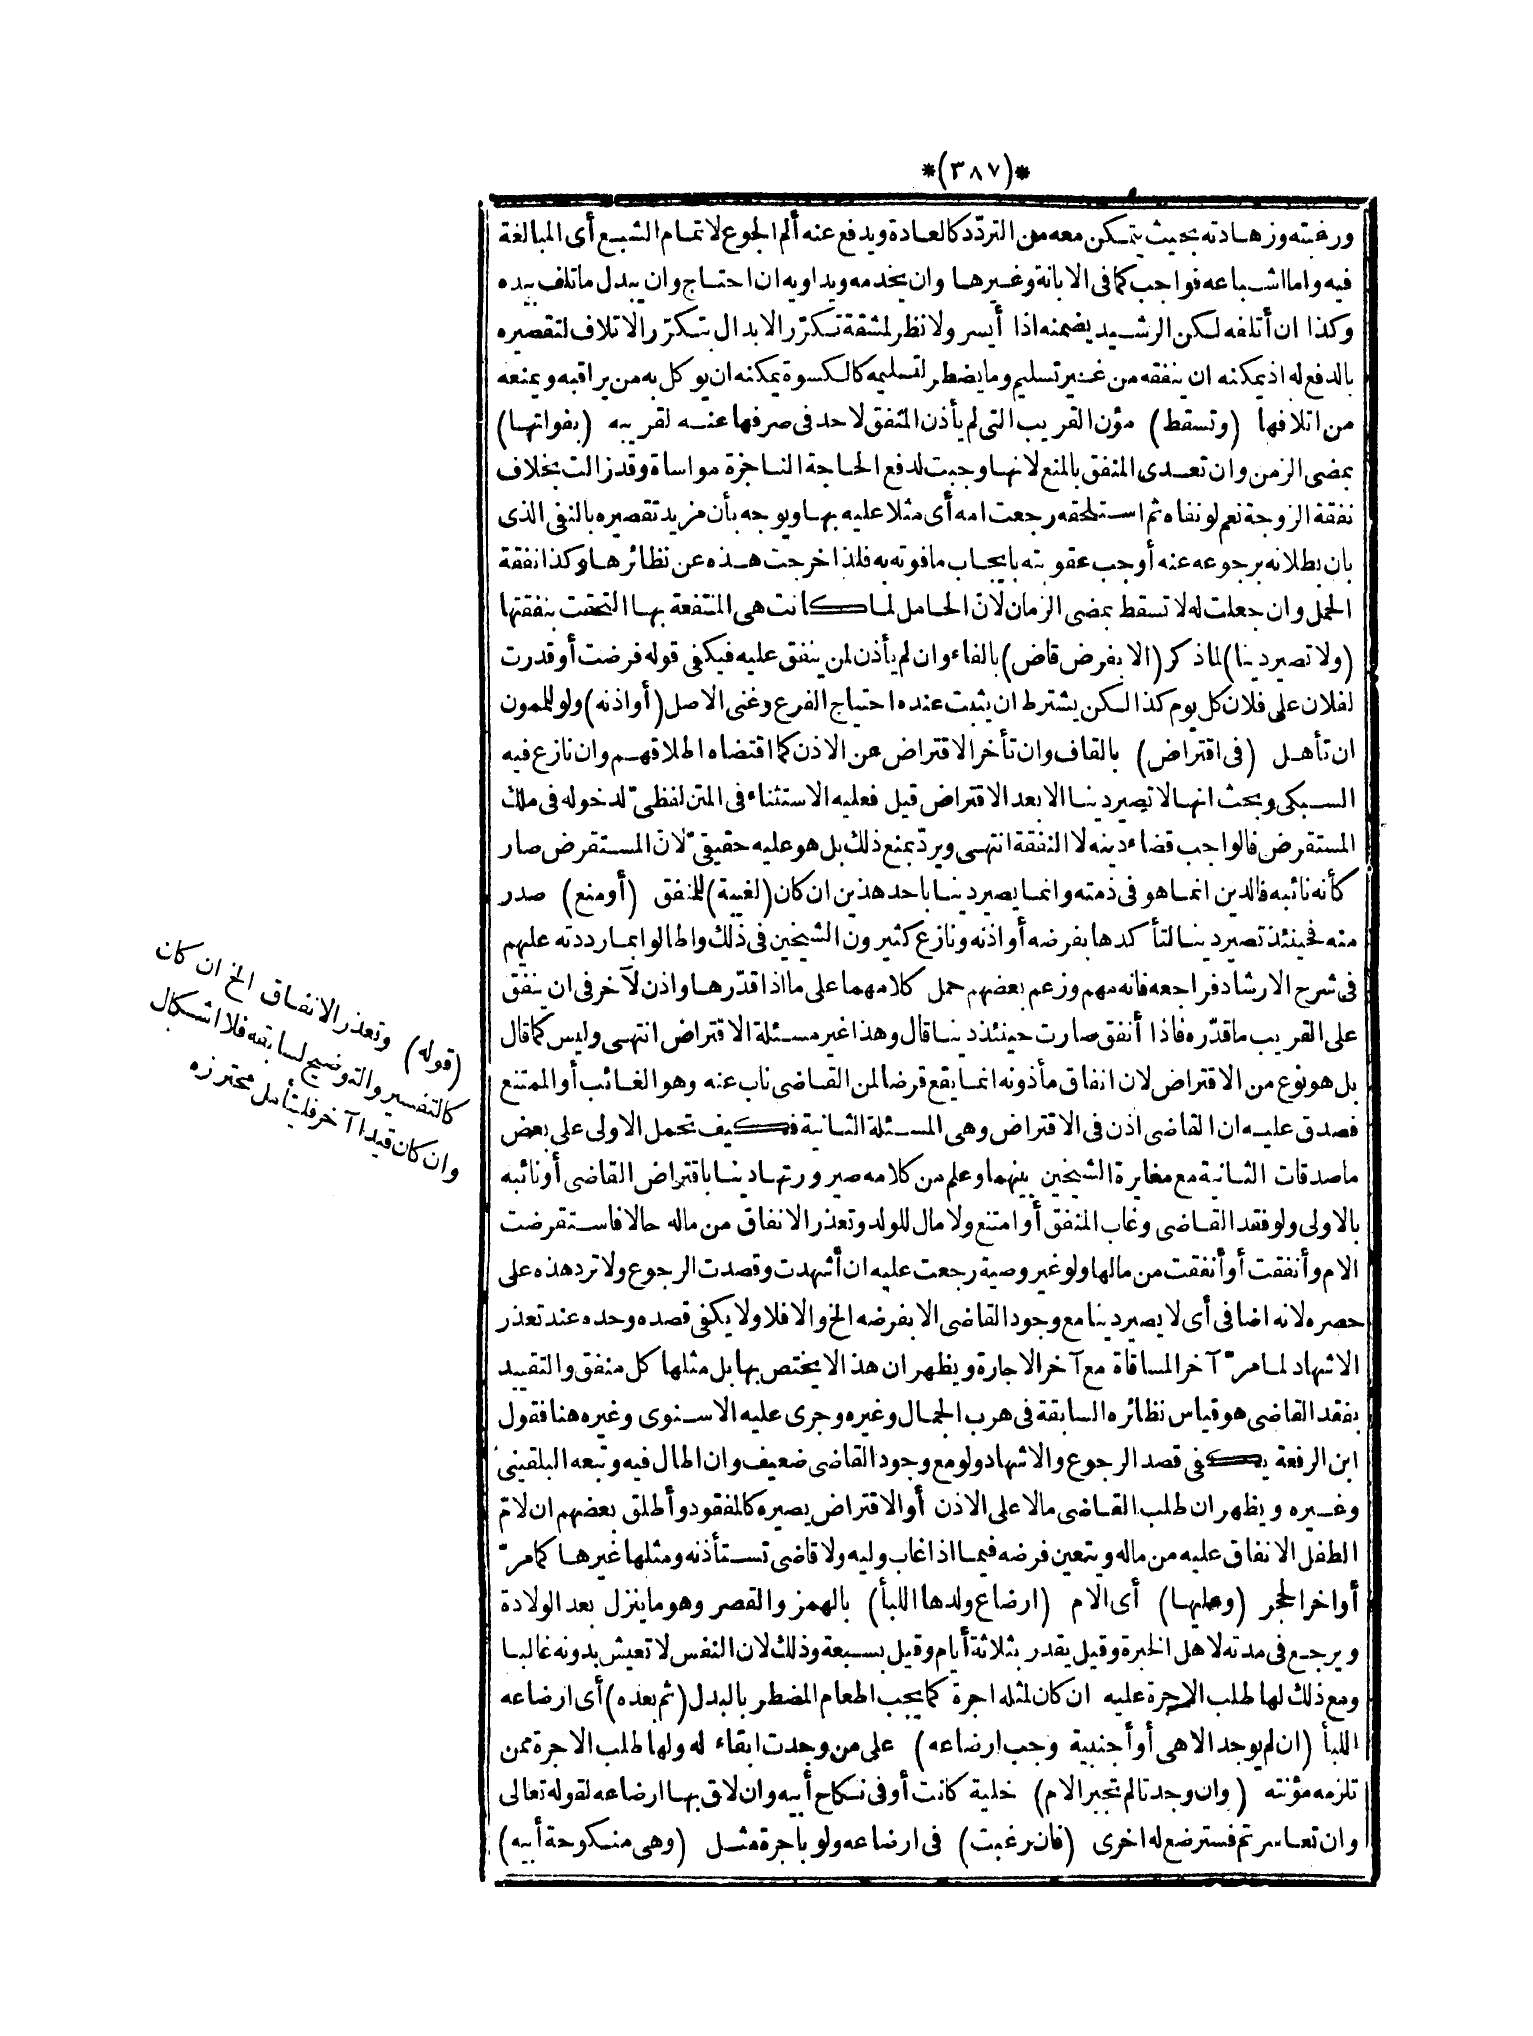 *(٣٨٧)*
ورغبته وزهادته بحيث يتمكن معه من التردّد كالعادة ويدفع عنه ألم الجوع لا تمام الشبع أى المبالغة
فيه واما اشباعه فواجب كما فى الابانة وغيرها وان يخدمه ويداويه ان احتاج وان يبدل ما تلف بيده
وكذا ان أتلفه لكن الرشيد يضمنه اذا أيسر ولا نظر لمشقة تكرّر الابدال بتكرّر الاتلاف لتقصيره
بالدفع له اذ يمكنه ان ينفقه من غير تسليم وما يضطر لتسليمه كالكسوة يمكنه ان يوكل به من يراقبه ويمنعه
من اتلافها (وتسقط) مؤن القريب التى لم يأذن المنفق لاحد فى صرفها عنه لقريبه (بفواتها)
بمضى الزمن وان تعدى المنفق بالمنع لانها وجبت لدفع الحاجة الناجزة مواساة وقد زالت بخلاف
نفقة الزوجة نعم لو نفاه ثم استلحقه رجعت امه أى مثلا عليه بها ويوجه بأن مزيد تقصيره بالنفى الذى
بان بطلانه برجوعه عنه أوجب عقوبته بايجاب ما فوته به فلذا خرجت هذه عن نظائرها وكذا نفقة
الحمل وان جعلت له لا تسقط بمضى الزمان لانّ الحامل لما كانت هى المنتفعة بها التحقت بنفقتها
(ولا تصير دينا) لما ذكر (الا بفرض قاض) بالفاء وان لم يأذن لمن ينفق عليه فيكفى قوله فرضت أو قدرت
لفلان على فلان كل يوم كذا لكن يشترط ان يثبت عنده احتياج الفرع وغنى الاصل (أو اذنه) ولو للممون
ان تأهل (فى اقتراض) بالقاف وان تأخر الاقتراض عن الاذن كما اقتضاه اطلاقهم وان نازع فيه
السبكى وبحث انها لا تصير دينا الا بعد الاقتراض قيل فعليه الاستثناء فى المتن لفظىّ لدخوله فى ملك
المستقرض فالواجب قضاء دينه لا النفقة انتهى ويردّ بمنع ذلك بل هو عليه حقيقىّ لانّ المستقرض صار
كأنه نائبه فالدين انما هو فى ذمته وانما يصير دينا باحد هذين ان كان (لغيبة) للمنفق (أو منع) صدر
منه فحينئذ تصير دينا لتأكدها بفرضه أو اذنه ونازع كثيرون الشيخين فى ذلك واطالوا بما رددته عليهم
فى شرح الارشاد فراجعه فانه مهم وزعم بعضهم حمل كلامهما على ما اذا قدّرها واذن لآخر فى ان ينفق
على القريب ما قدّره فاذا أنفق صارت حينئذ دينا قال وهذا غير مسئلة الاقتراض انتهى وليس كما قال
بل هو نوع من الاقتراض لان انفاق مأذونه انما يقع قرضا لمن القاضى ناب عنه وهو الغائب أو الممتنع
فصدق عليه ان القاضى اذن فى الاقتراض وهى المسئلة الثانية فكيف تحمل الاولى على بعض
ماصدقات الثانية مع مغايرة الشيخين بينهما وعلم من كلامه صيرورتها دينا باقتراض القاضى أو نائبه
بالاولى ولو فقد القاضى وغاب المنفق أو امتنع ولا مال للولد وتعذر الانفاق من ماله حالا فاستقرضت
الام وأنفقت أو أنفقت من مالها ولو غير وصية رجعت عليه ان أشهدت وقصدت الرجوع ولا ترد هذه على
حصره لانه اضافى أى لا يصير دينا مع وجود القاضى الا بفرضه الخ والا فلا ولا يكفى قصده وحده عند تعذر
الاشهاد لما مرّ آخر المساقاة مع آخر الاجارة ويظهر ان هذا لا يختص بها بل مثلها كل منفق والتقييد
بفقد القاضى هو قياس نظائره السابقة فى هرب الجمال وغيره وجرى عليه الاسنوى وغيره هنا فقول
ابن الرفعة يكفى قصد الرجوع والاشهاد ولو مع وجود القاضى ضعيف وان اطال فيه وتبعه البلقينى
وغيره ويظهر ان طلب القاضى مالا على الاذن أو الاقتراض يصيره كالمفقود وأطلق بعضهم ان لامّ
الطفل الانفاق عليه من ماله ويتعين فرضه فيما اذا غاب وليه ولا قاضى تستأذنه ومثلها غيرها كما مرّ
أواخر الحجر (وعليها) أى الام (ارضاع ولدها اللبأ) بالهمز والقصر وهو ما ينزل بعد الولادة
ويرجع فى مدته لاهل الخبرة وقيل يقدر بثلاثة أيام وقيل بسبعة وذلك لان النفس لا تعيش بدونه غالبا
ومع ذلك لها طلب الاجرة عليه ان كان لمثله اجرة كما يجب اطعام المضطر بالبدل (ثم بعده) أى ارضاعه
اللبأ (ان لم يوجد الا هى أو أجنبية وجب ارضاعه) على من وجدت ابقاء له ولها طلب الاجرة ممن
تلزمه مؤنته (وان وجدتا لم تجبر الام) خلية كانت أو فى نكاح أبيه وان لاق بها ارضاعه لقوله تعالى
وان تعاسرتم فسترضع له اخرى (فان رغبت) فى ارضاعه ولو باجرة مثل (وهى منكوحة أبيه)
(قوله) وتعذر الانفاق الخ ان كان
كالتفسير والتوضيح لسابقه فلا اشكال
وان كان قيدا آخر فليتأمل محترزه